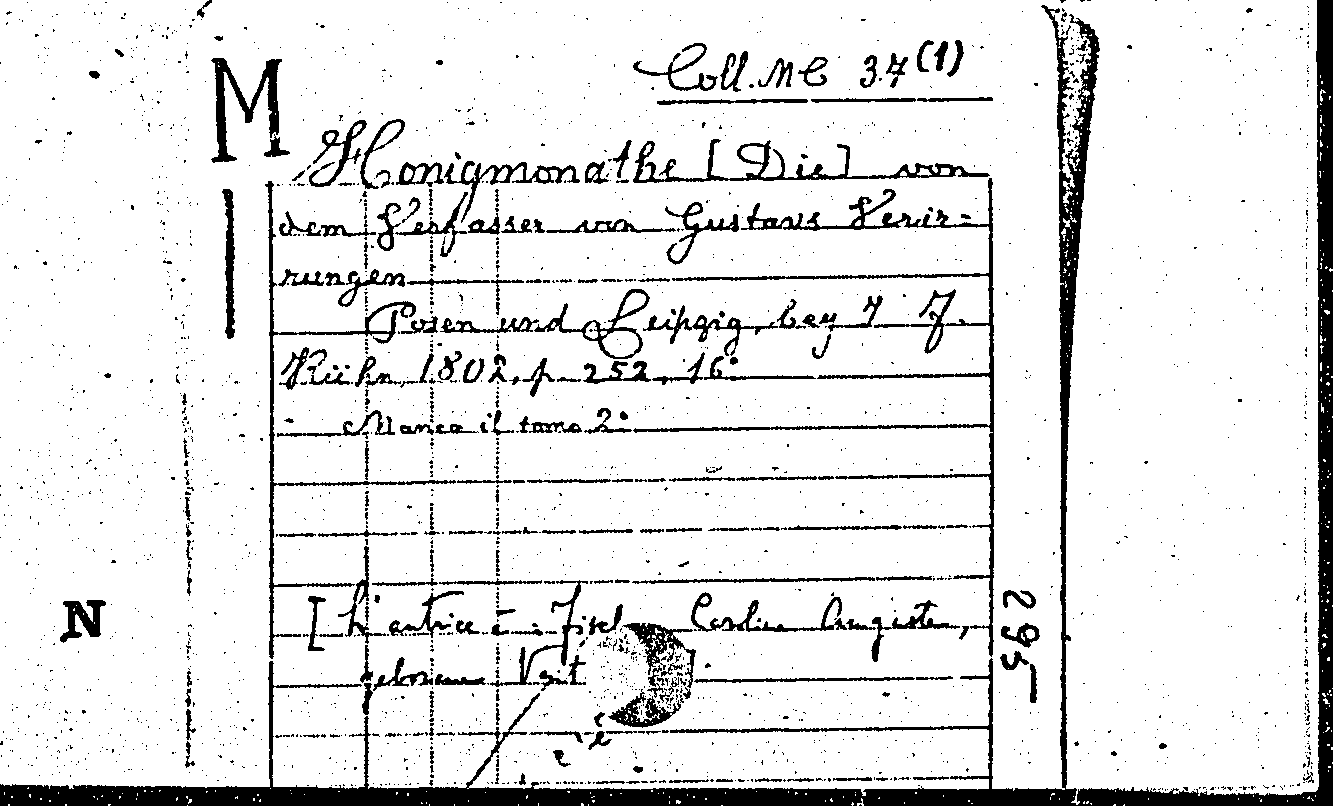 M
Coll. MC 37(1)
Honigmonathe [Die] von
dem Verfasser von Gustavs Verir-
rungen
Posen und Leipzig, bey J. F.
Kühn, 1802, p. 252, 16°
- Manca il tomo 2°
[L'autrice è: Fisch Caroline Auguste,
geborene Vent
N
295